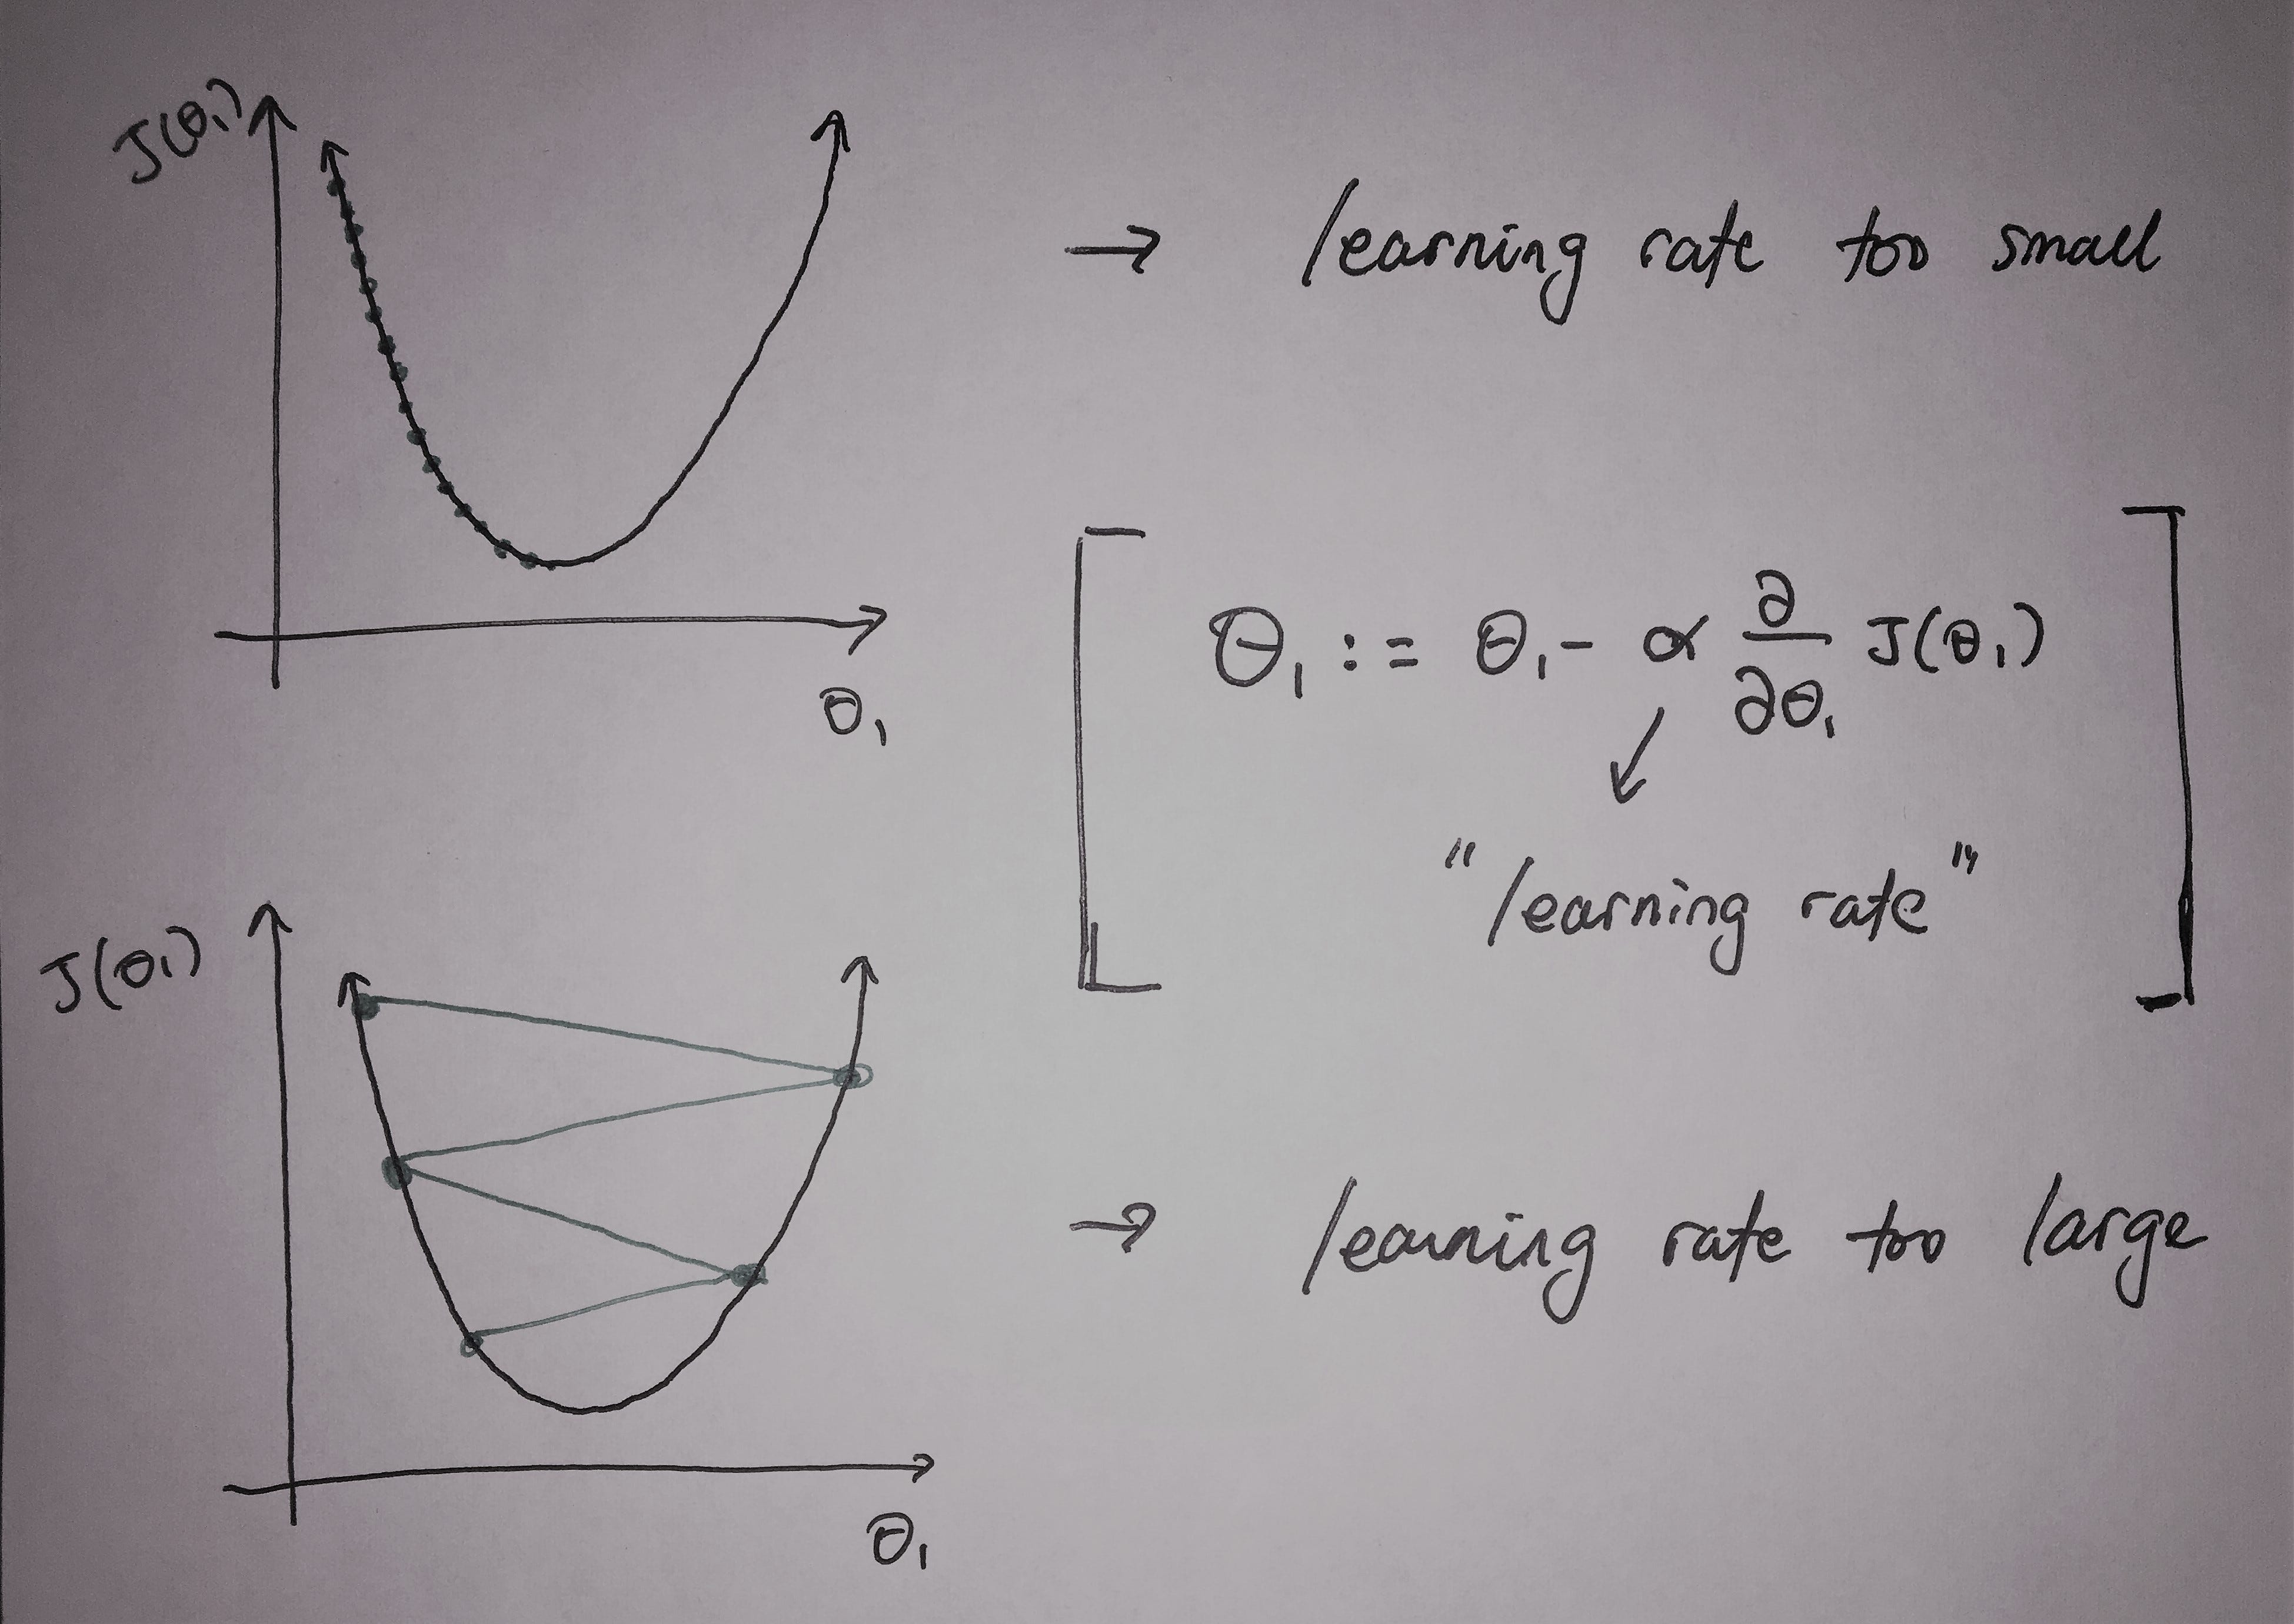 J(θ₁)
→ learning rate too small
θ₁
[ θ₁ := θ₁ - α ∂/∂θ₁ J(θ₁) ]
"learning rate"
J(θ₁)
→ learning rate too large
θ₁